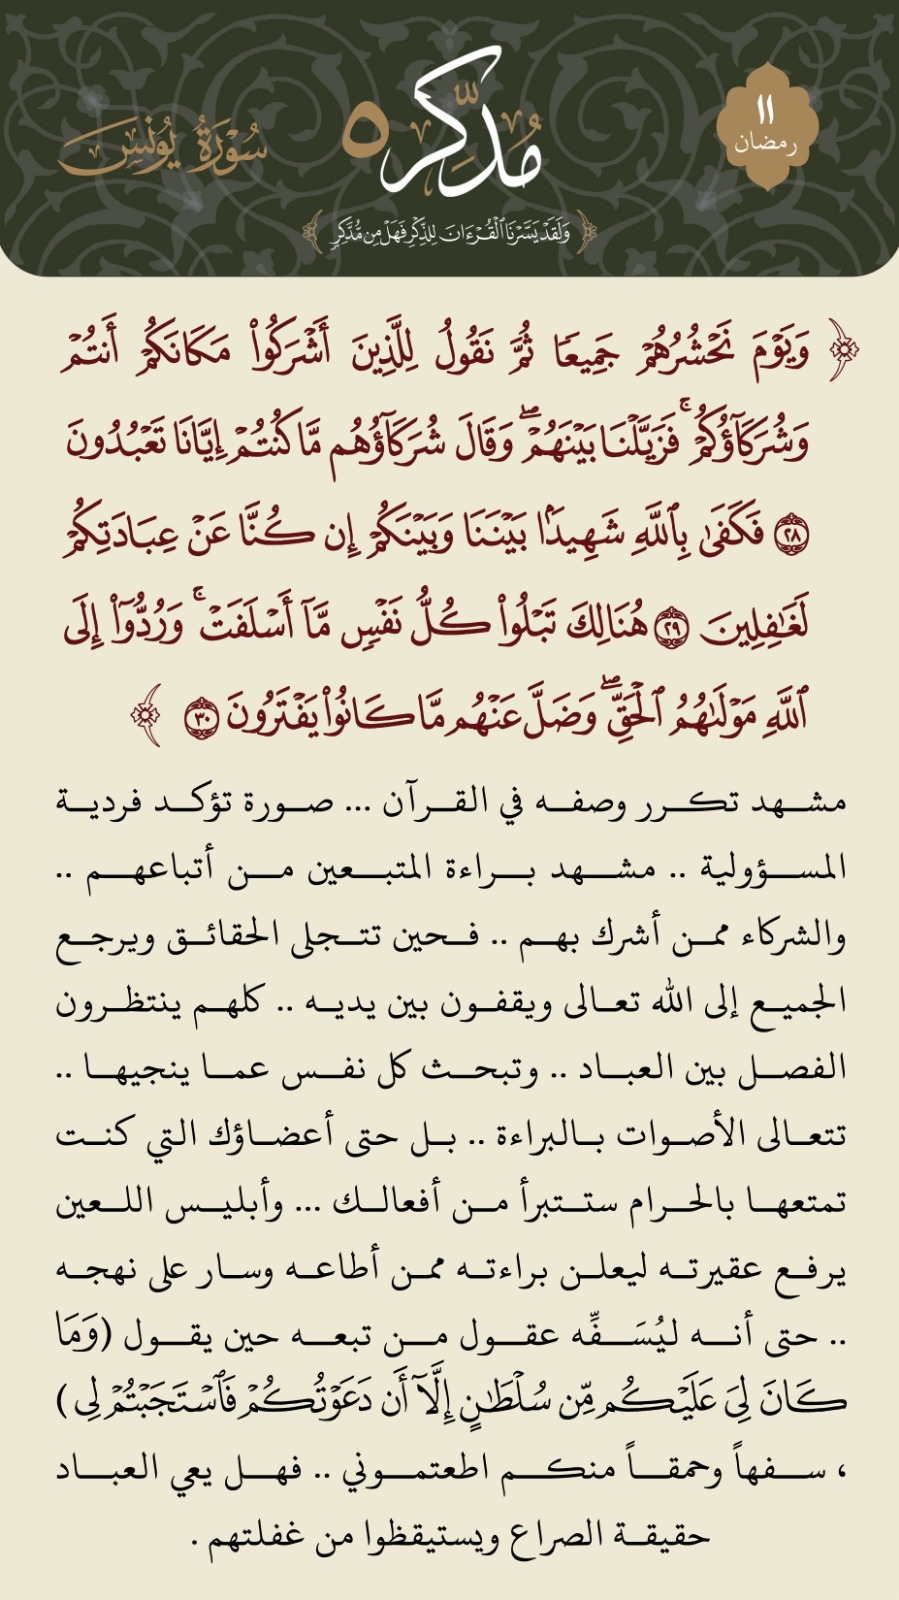 ١١
رمضان
مُدَّكِر ٥
سُورَةُ يُونُسَ
﴿ وَلَقَدْ يَسَّرْنَا ٱلْقُرْءَانَ لِلذِّكْرِ فَهَلْ مِن مُّدَّكِرٍ ﴾
﴿ وَيَوْمَ نَحْشُرُهُمْ جَمِيعًا ثُمَّ نَقُولُ لِلَّذِينَ أَشْرَكُوا۟ مَكَانَكُمْ أَنتُمْ
وَشُرَكَآؤُكُمْ ۚ فَزَيَّلْنَا بَيْنَهُمْ ۖ وَقَالَ شُرَكَآؤُهُم مَّا كُنتُمْ إِيَّانَا تَعْبُدُونَ
٢٨ فَكَفَىٰ بِٱللَّهِ شَهِيدًۢا بَيْنَنَا وَبَيْنَكُمْ إِن كُنَّا عَنْ عِبَادَتِكُمْ
لَغَـٰفِلِينَ ٢٩ هُنَالِكَ تَبْلُوا۟ كُلُّ نَفْسٍ مَّآ أَسْلَفَتْ ۚ وَرُدُّوٓا۟ إِلَى
ٱللَّهِ مَوْلَىٰهُمُ ٱلْحَقِّ ۖ وَضَلَّ عَنْهُم مَّا كَانُوا۟ يَفْتَرُونَ ٣٠ ﴾
مشهد تكرر وصفه في القرآن ... صورة تؤكد فردية
المسؤولية .. مشهد براءة المتبعين من أتباعهم ..
والشركاء ممن أشرك بهم .. فحين تتجلى الحقائق ويرجع
الجميع إلى الله تعالى ويقفون بين يديه .. كلهم ينتظرون
الفصل بين العباد .. وتبحث كل نفس عما ينجيها ..
تتعالى الأصوات بالبراءة .. بل حتى أعضاؤك التي كنت
تمتعها بالحرام ستتبرأ من أفعالك ... وأبليس اللعين
يرفع عقيرته ليعلن براءته ممن أطاعه وسار على نهجه
.. حتى أنه ليُسَفِّه عقول من تبعه حين يقول (وَمَا
كَانَ لِىَ عَلَيْكُم مِّن سُلْطَـٰنٍ إِلَّآ أَن دَعَوْتُكُمْ فَٱسْتَجَبْتُمْ لِى)
، سفهاً وحمقاً منكم اطعتموني .. فهل يعي العباد
حقيقة الصراع ويستيقظوا من غفلتهم .